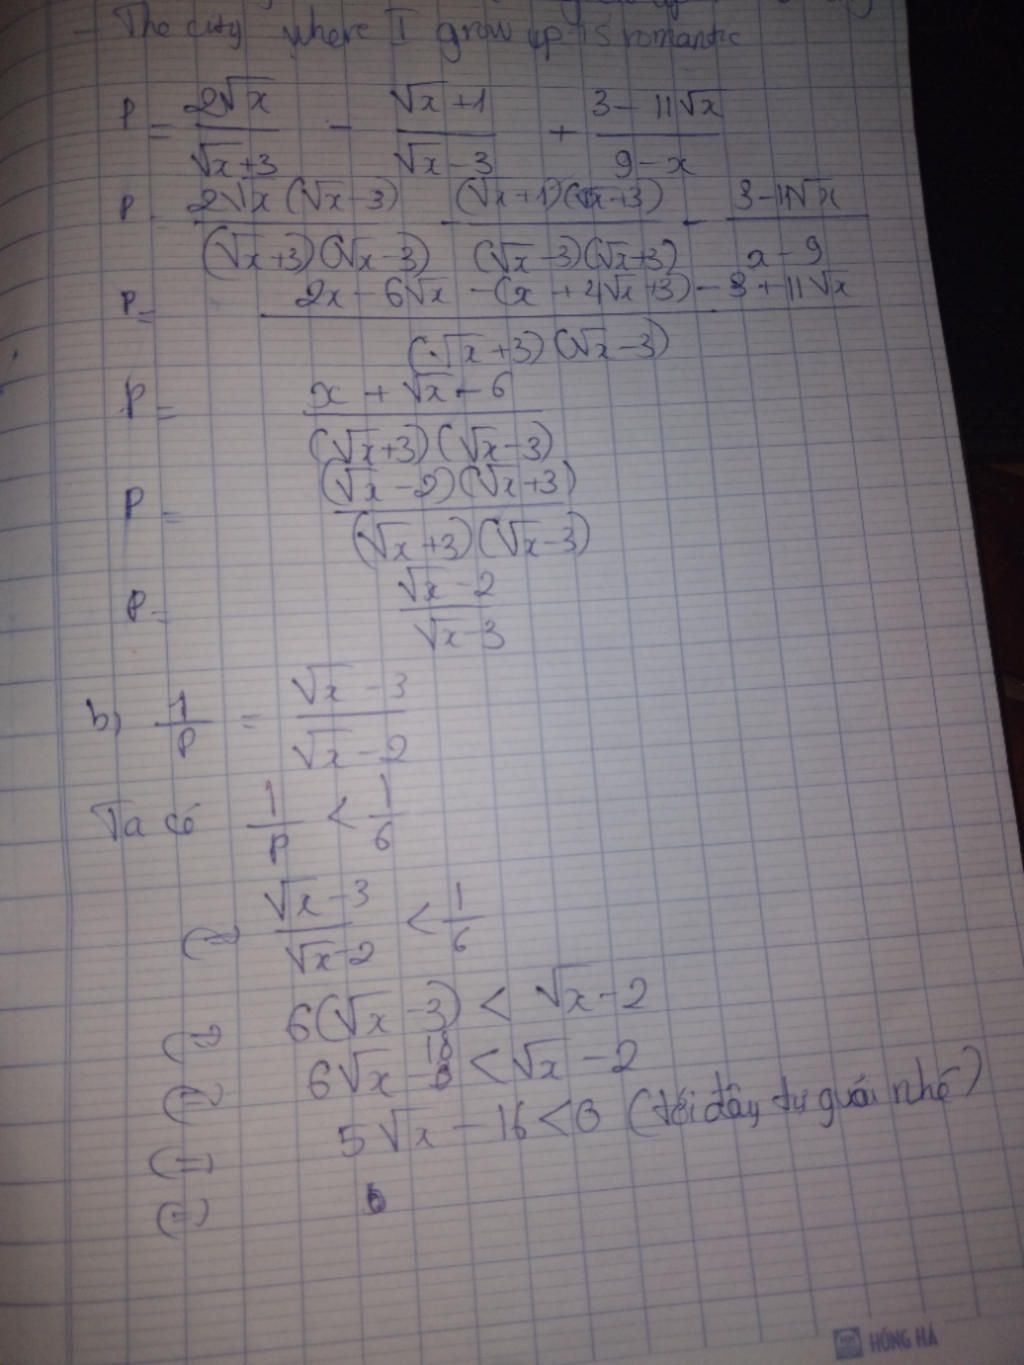 - The city where I grow up is romantic
P = 2√x / (√x+3) - (√x+1) / (√x-3) + (3-11√x) / (9-x)
P = 2√x(√x-3) / (√x+3)(√x-3) - (√x+1)(√x+3) / (√x-3)(√x+3) - (3-11√x) / (x-9)
P = (2x-6√x -(x+4√x+3) - 3+11√x) / (√x+3)(√x-3)
P = (x+√x-6) / (√x+3)(√x-3)
P = (√x-2)(√x+3) / (√x+3)(√x-3)
P = (√x-2) / (√x-3)
b) 1/P = (√x-3) / (√x-2)
Ta có 1/P < 1/6
(=) (√x-3) / (√x-2) < 1/6
(=) 6(√x-3) < √x-2
(=) 6√x-18 < √x-2
(=) 5√x-16<0 (tới đây tự giải nhé)
(=)
HỒNG HÀ